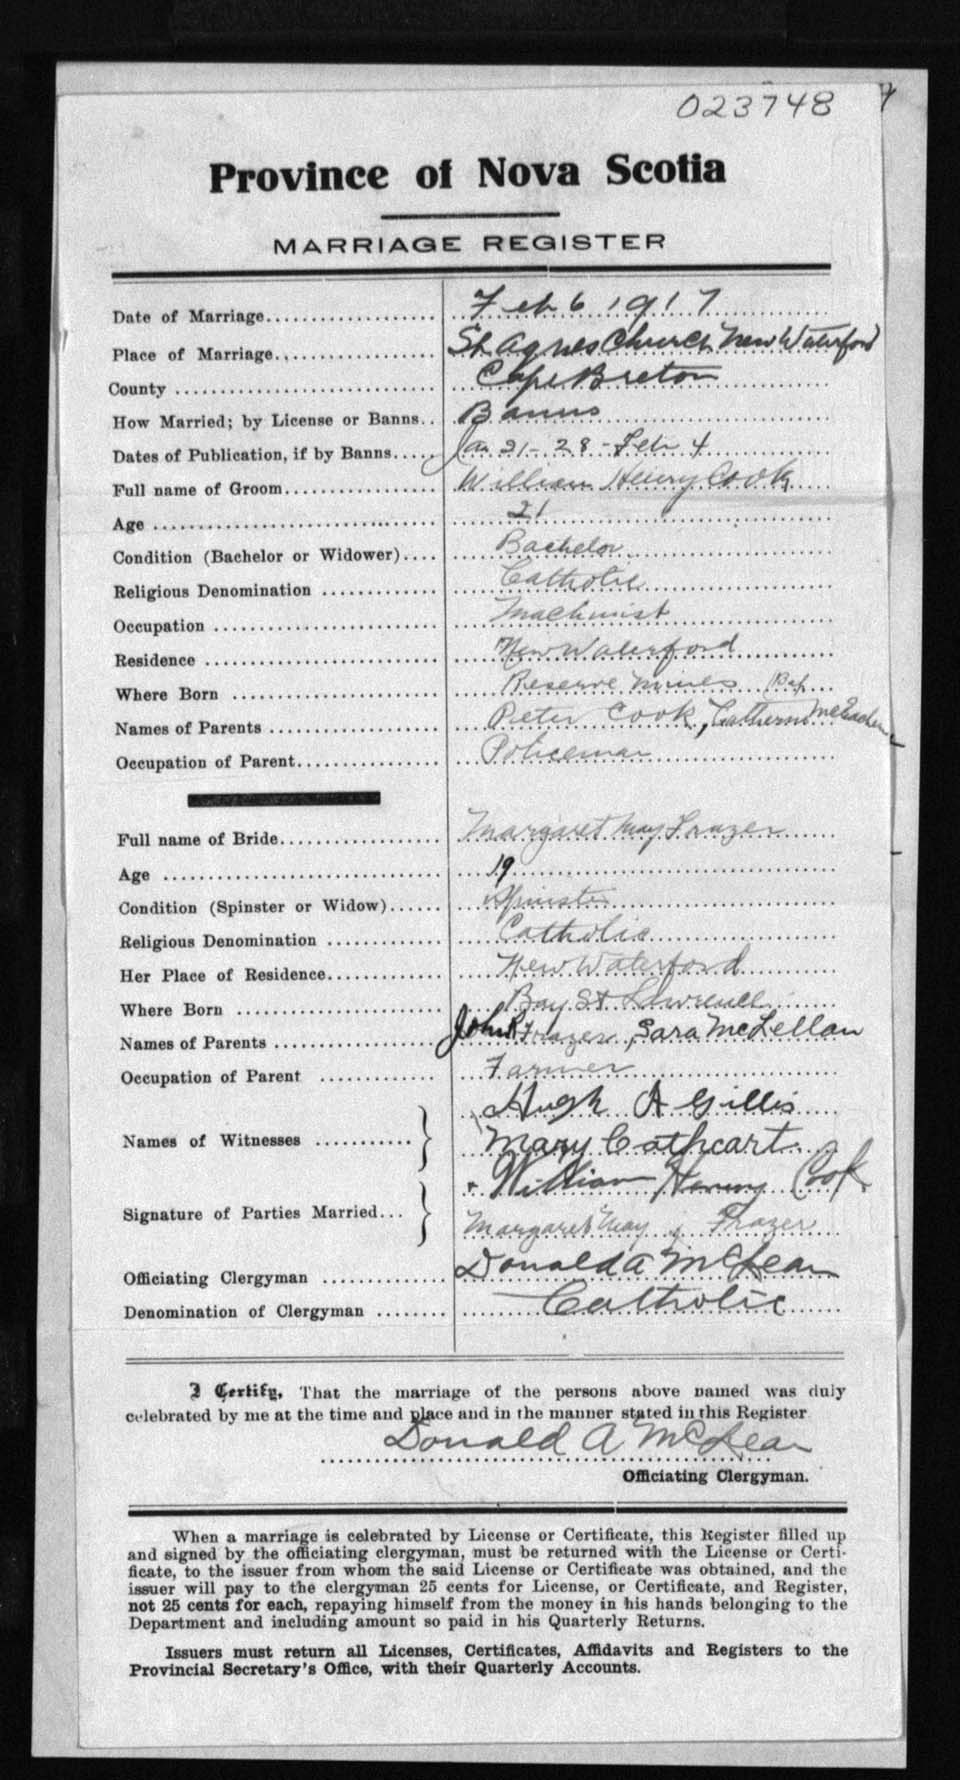 023748
Province of Nova Scotia
MARRIAGE REGISTER
Date of Marriage.................... Feb 6 1917
Place of Marriage................... St. Agnes Church New Waterford
County ............................. Cape Breton
How Married; by License or Banns.. Banns
Dates of Publication, if by Banns..... Jan 21 - 28 - Feb 4
Full name of Groom.................. William Henry Cook
Age ................................ 21
Condition (Bachelor or Widower).... Bachelor
Religious Denomination ............. Catholic
Occupation ......................... Machinist
Residence .......................... New Waterford
Where Born ......................... Reserve Mines
Names of Parents ................... Peter Cook, Catherine McEachern
Occupation of Parent................ Policeman
Full name of Bride.................. Margaret May Frazer
Age ................................ 19
Condition (Spinster or Widow)...... Spinster
Religious Denomination ............. Catholic
Her Place of Residence............. New Waterford
Where Born ......................... Bay St Lawrence
Names of Parents ................... John R Frazer, Sara McLellan
Occupation of Parent ............... Farmer
Names of Witnesses ........... } Hugh A Gillis
Mary Cathcart
Signature of Parties Married... } William Henry Cook
Margaret May Frazer
Officiating Clergyman .............. Donald A McLean
Denomination of Clergyman ........ Catholic
I Certify, That the marriage of the persons above named was duly
celebrated by me at the time and place and in the manner stated in this Register
Donald A McLean
Officiating Clergyman.
When a marriage is celebrated by License or Certificate, this Register filled up
and signed by the officiating clergyman, must be returned with the License or Certi-
ficate, to the issuer from whom the said License or Certificate was obtained, and the
issuer will pay to the clergyman 25 cents for License, or Certificate, and Register,
not 25 cents for each, repaying himself from the money in his hands belonging to the
Department and including amount so paid in his Quarterly Returns.
Issuers must return all Licenses, Certificates, Affidavits and Registers to the
Provincial Secretary's Office, with their Quarterly Accounts.